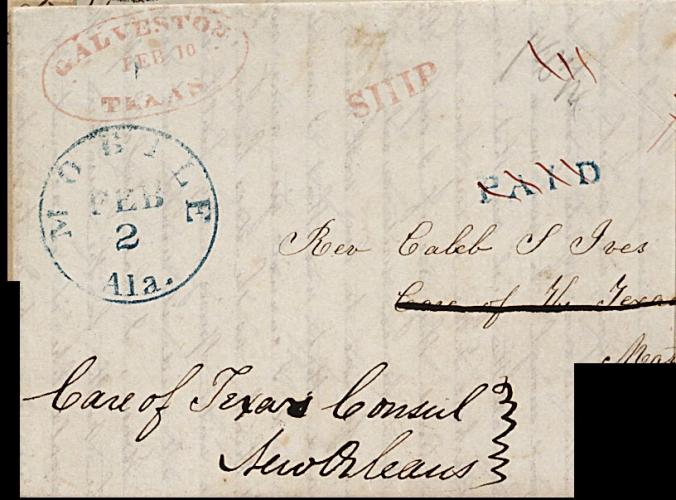 GALVESTON
FEB 10
TEXAS
SHIP
MOBILE
FEB
2
Ala.
PAID
Rev Caleb S Ives
Care of The Texas
Care of Texas Consul
New Orleans